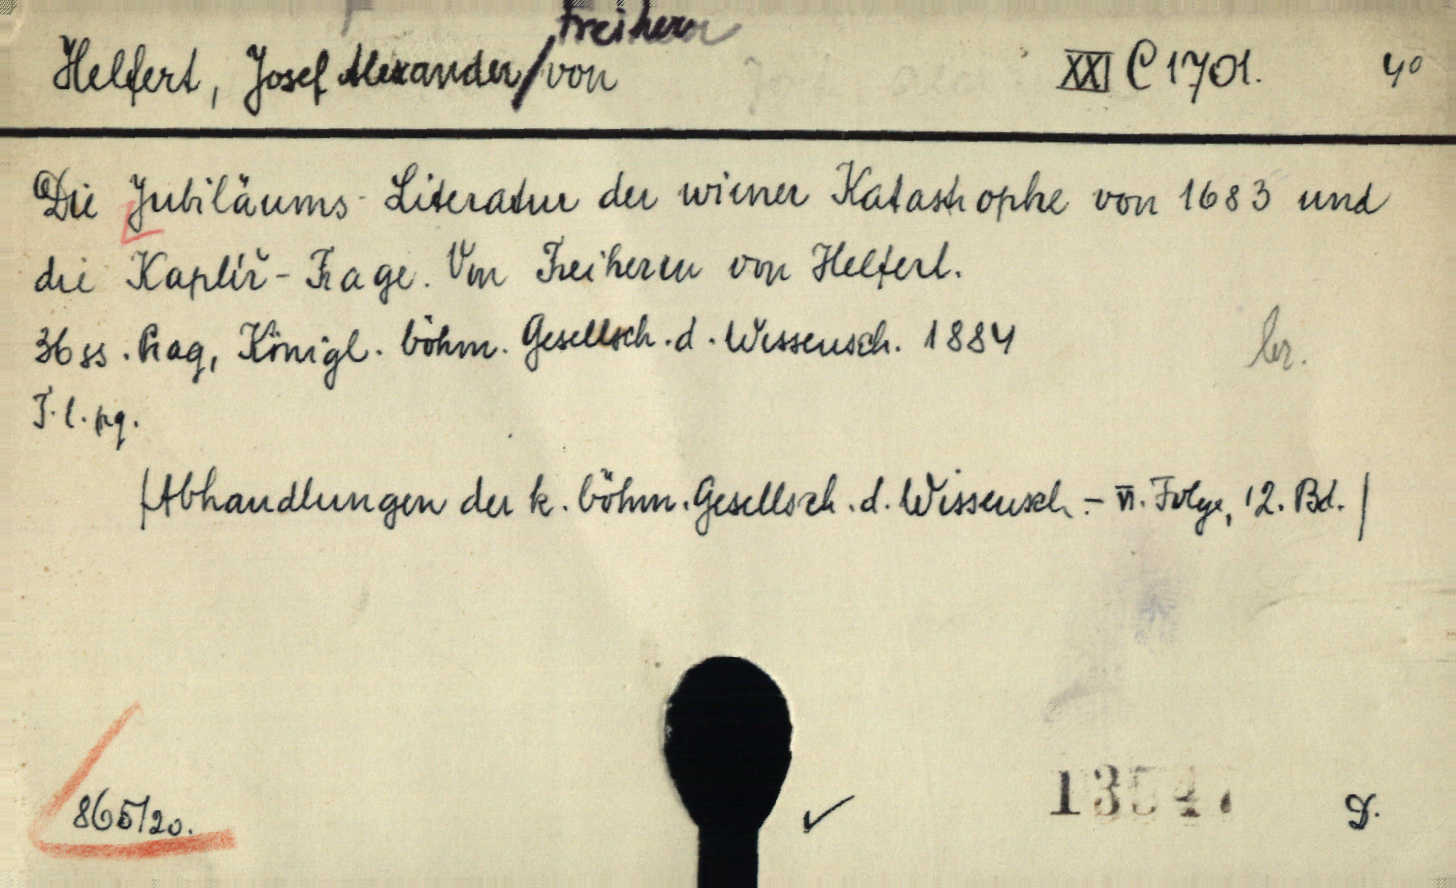 Freiherr
Helfert, Josef Alexander / von XXI C 1701. 4°
Die Jubiläums-Literatur der wiener Katastrophe von 1683 und
die Kaplíř-Frage. Von Freiherrn von Helfert.
36 ss. Prag, Königl. böhm. Gesellsch. d. Wissensch. 1884
br.
T. l. pg.
/Abhandlungen der k. böhm. Gesellsch. d. Wissensch. - VI. Folge, 12. Bd./
865/20. 13547 D.